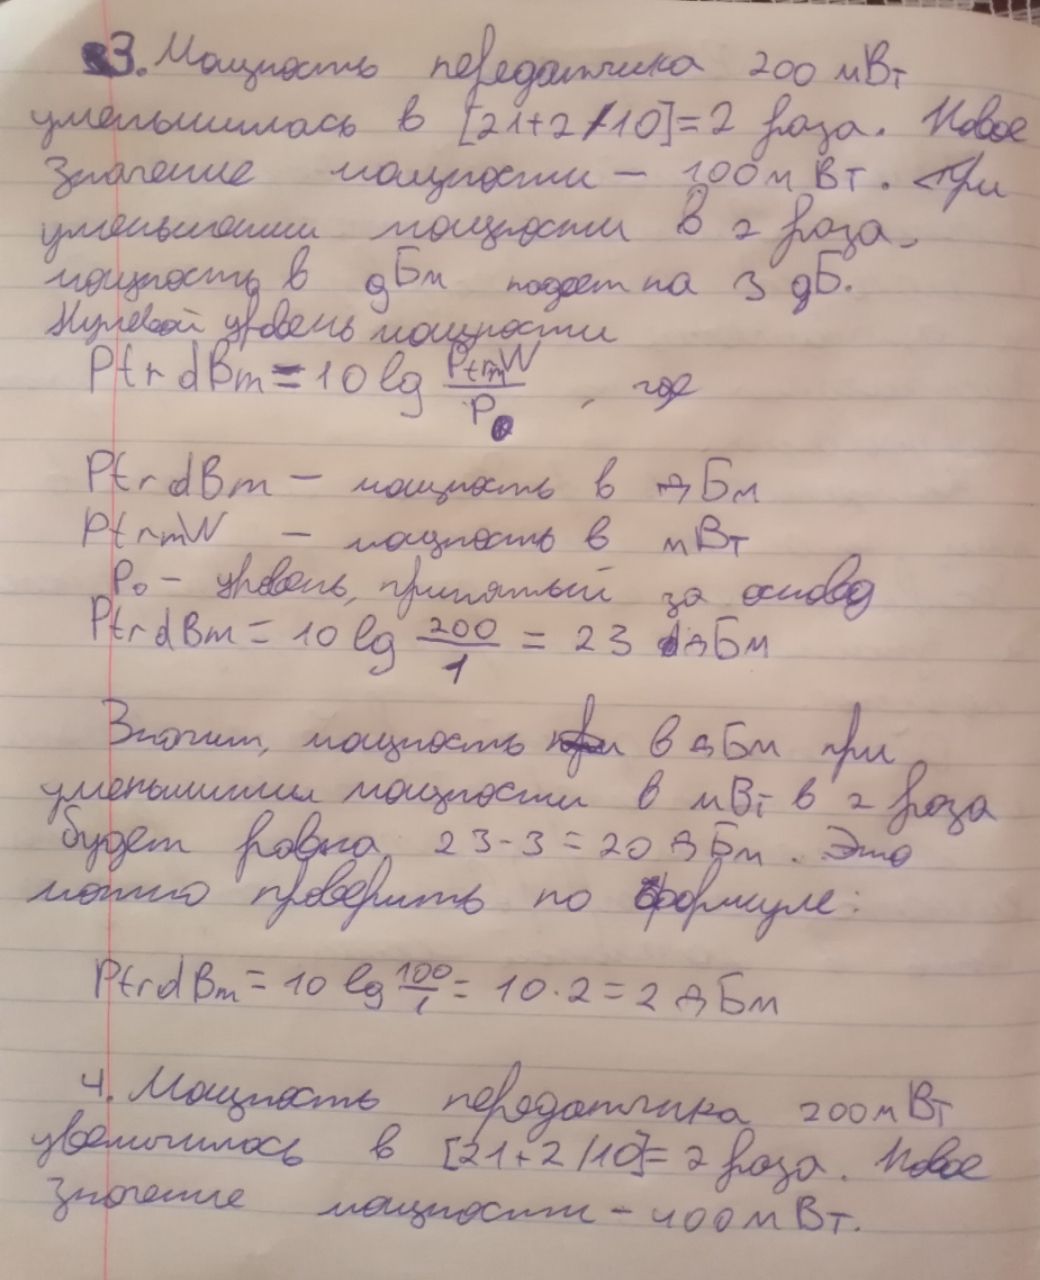 3. Мощность передатчика 200 мВт
уменьшилась в [21+2/10]=2 раза. Новое
значение мощности – 100 мВт. При
уменьшении мощности в 2 раза,
мощность в дБм падает на 3 дБ.
Нулевой уровень мощности
Ptr dBm = 10 lg PtrmW/P0, где
Ptr dBm – мощность в дБм
PtrmW – мощность в мВт
P0 – уровень, принятый за основу
Ptr dBm = 10 lg 200/1 = 23 дБм
Значит, мощность в дБм при
уменьшении мощности в мВт в 2 раза
будет равна 23-3=20 дБм. Это
можно проверить по формуле:
Ptr dBm = 10 lg 100/1 = 10·2=2 дБм
4. Мощность передатчика 200 мВт
увеличилась в [21+2/10]=2 раза. Новое
значение мощности – 400 мВт.